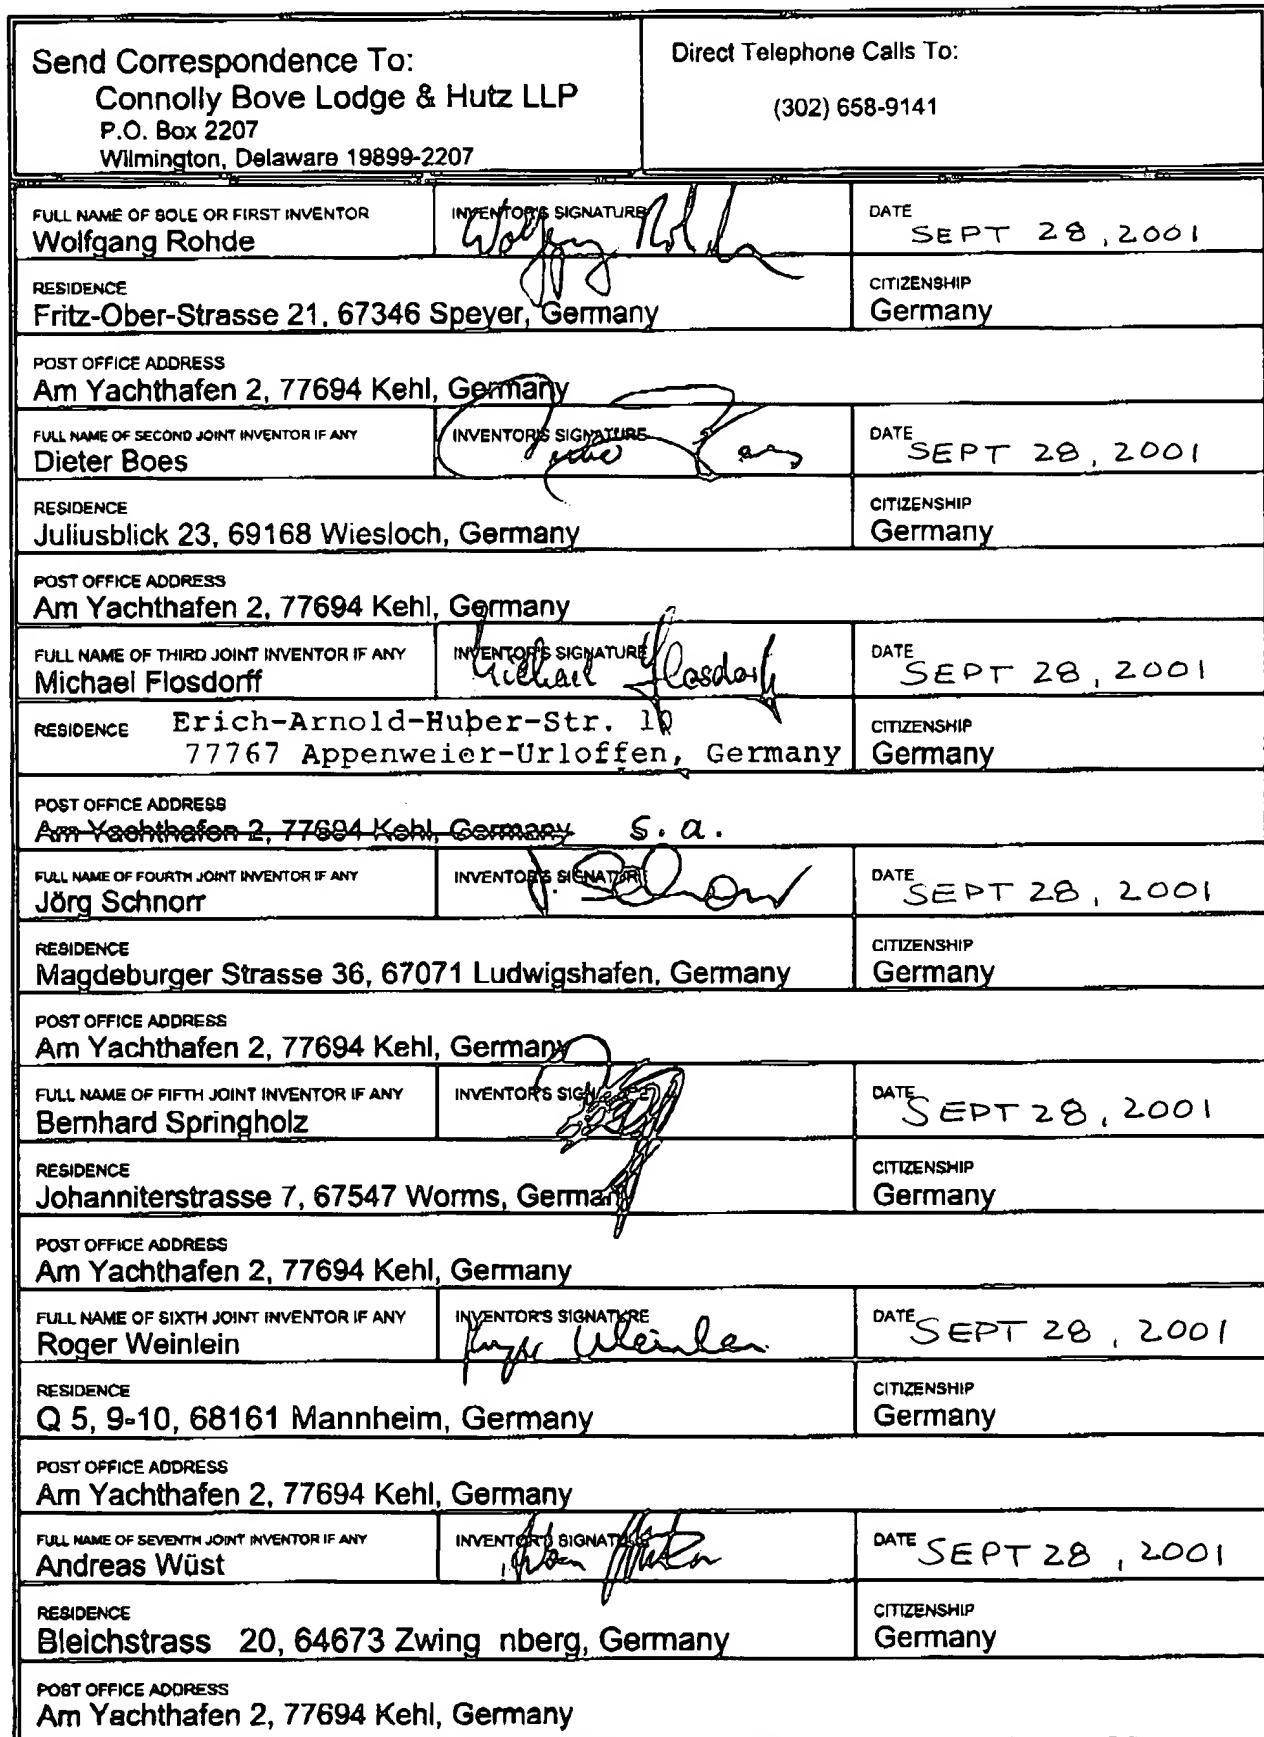 Send Correspondence To:
Connolly Bove Lodge & Hutz LLP
P.O. Box 2207
Wilmington, Delaware 19899-2207
Direct Telephone Calls To:
(302) 658-9141
FULL NAME OF SOLE OR FIRST INVENTOR
Wolfgang Rohde
INVENTOR'S SIGNATURE
Wolfgang Rohde
DATE
SEPT 28, 2001
RESIDENCE
Fritz-Ober-Strasse 21, 67346 Speyer, Germany
CITIZENSHIP
Germany
POST OFFICE ADDRESS
Am Yachthafen 2, 77694 Kehl, Germany
FULL NAME OF SECOND JOINT INVENTOR IF ANY
Dieter Boes
INVENTOR'S SIGNATURE
DATE
SEPT 28, 2001
RESIDENCE
Juliusblick 23, 69168 Wiesloch, Germany
CITIZENSHIP
Germany
POST OFFICE ADDRESS
Am Yachthafen 2, 77694 Kehl, Germany
FULL NAME OF THIRD JOINT INVENTOR IF ANY
Michael Flosdorff
INVENTOR'S SIGNATURE
Michael Flosdorff
DATE
SEPT 28, 2001
RESIDENCE
Erich-Arnold-Huber-Str. 10
77767 Appenweier-Urloffen, Germany
CITIZENSHIP
Germany
POST OFFICE ADDRESS
Am Yachthafen 2, 77694 Kehl, Germany s.a.
FULL NAME OF FOURTH JOINT INVENTOR IF ANY
Jörg Schnorr
INVENTOR'S SIGNATURE
J. Schnorr
DATE
SEPT 28, 2001
RESIDENCE
Magdeburger Strasse 36, 67071 Ludwigshafen, Germany
CITIZENSHIP
Germany
POST OFFICE ADDRESS
Am Yachthafen 2, 77694 Kehl, Germany
FULL NAME OF FIFTH JOINT INVENTOR IF ANY
Bernhard Springholz
INVENTOR'S SIGNATURE
DATE
SEPT 28, 2001
RESIDENCE
Johanniterstrasse 7, 67547 Worms, Germany
CITIZENSHIP
Germany
POST OFFICE ADDRESS
Am Yachthafen 2, 77694 Kehl, Germany
FULL NAME OF SIXTH JOINT INVENTOR IF ANY
Roger Weinlein
INVENTOR'S SIGNATURE
Roger Weinlein
DATE
SEPT 28, 2001
RESIDENCE
Q 5, 9-10, 68161 Mannheim, Germany
CITIZENSHIP
Germany
POST OFFICE ADDRESS
Am Yachthafen 2, 77694 Kehl, Germany
FULL NAME OF SEVENTH JOINT INVENTOR IF ANY
Andreas Wüst
INVENTOR'S SIGNATURE
DATE
SEPT 28, 2001
RESIDENCE
Bleichstrass 20, 64673 Zwing nberg, Germany
CITIZENSHIP
Germany
POST OFFICE ADDRESS
Am Yachthafen 2, 77694 Kehl, Germany